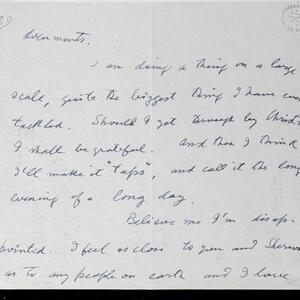 39
overmonts.
I am doing a thing on a large
scale, quite the biggest thing I have ever
tackled. Should I get through by Christ
I shall be grateful. And then I think
I'll make it "taps", and call it the long
evening of a long day.
Believe me I'm disap-
pointed. I feel as close to you and Sherwo
as to any people on earth and I have